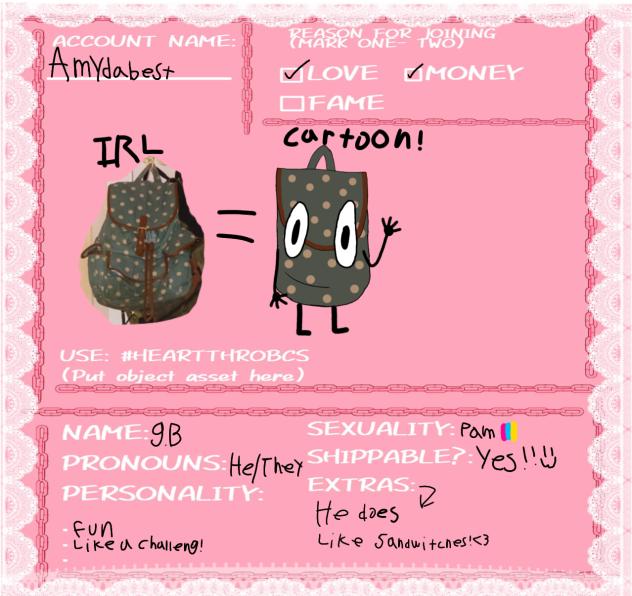 ACCOUNT NAME:
AmYdabest
REASON FOR JOINING
(MARK ONE- TWO)
LOVE MONEY
FAME
IRL
cartoon!
=
USE: #HEARTTHROBCS
(Put object asset here)
NAME: g.B
PRONOUNS: He/They
PERSONALITY:
- FUN
- Like a challeng!
-
SEXUALITY: Pam
SHIPPABLE?: Yes!!
EXTRAS:
He does
Like Sandwitches!<3